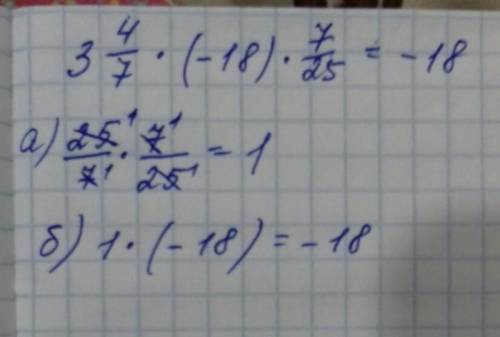 3 4/7 · (-18) · 7/25 = -18
а) 25¹/7¹ · 7¹/25¹ = 1
б) 1 · (-18) = -18